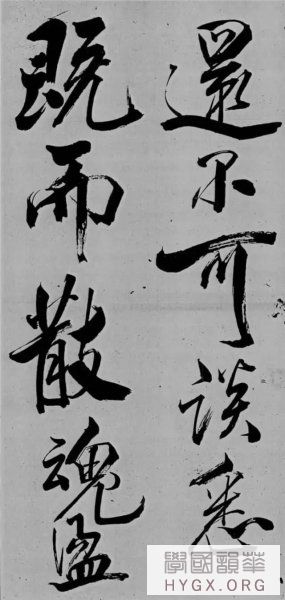 還不可談悉
既而散魂盪
學國韻華
HYGX.ORG